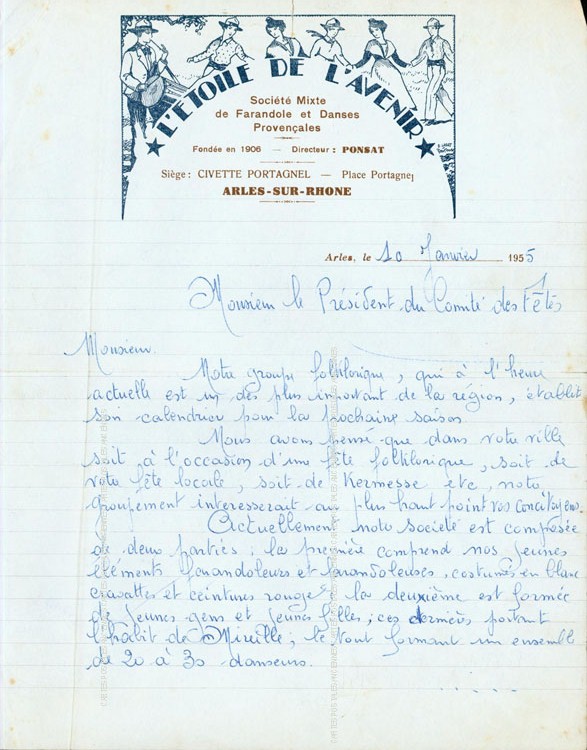 L'ETOILE DE L'AVENIR
Société Mixte
de Farandole et Danses
Provençales
Fondée en 1906 — Directeur : PONSAT
Siège : CIVETTE PORTAGNEL — Place Portagnel
ARLES-SUR-RHONE
Arles, le 10 Janvier 1955
Monsieur le Président du Comité des Fêtes
Monsieur.
Notre groupe folklorique, qui à l'heure
actuelle est un des plus important de la région, établit
son calendrier pour la prochaine saison
Nous avons pensé que dans votre ville
soit à l'occasion d'une fête folklorique, soit de
votre fête locale, soit de Kermesse etc, notre
groupement interesserait au plus haut point vos concitoyens.
Actuellement notre société est composée
de deux parties ; la première comprend nos jeunes
éléments farandoleurs et farandoleuses, costumés en blanc
cravattes et ceintures rouges la deuxième est formée
de jeunes gens et jeunes filles ; ces dernières portant
l'habit de Mireille ; le tout formant un ensemble
de 20 à 30 danseurs.
.....